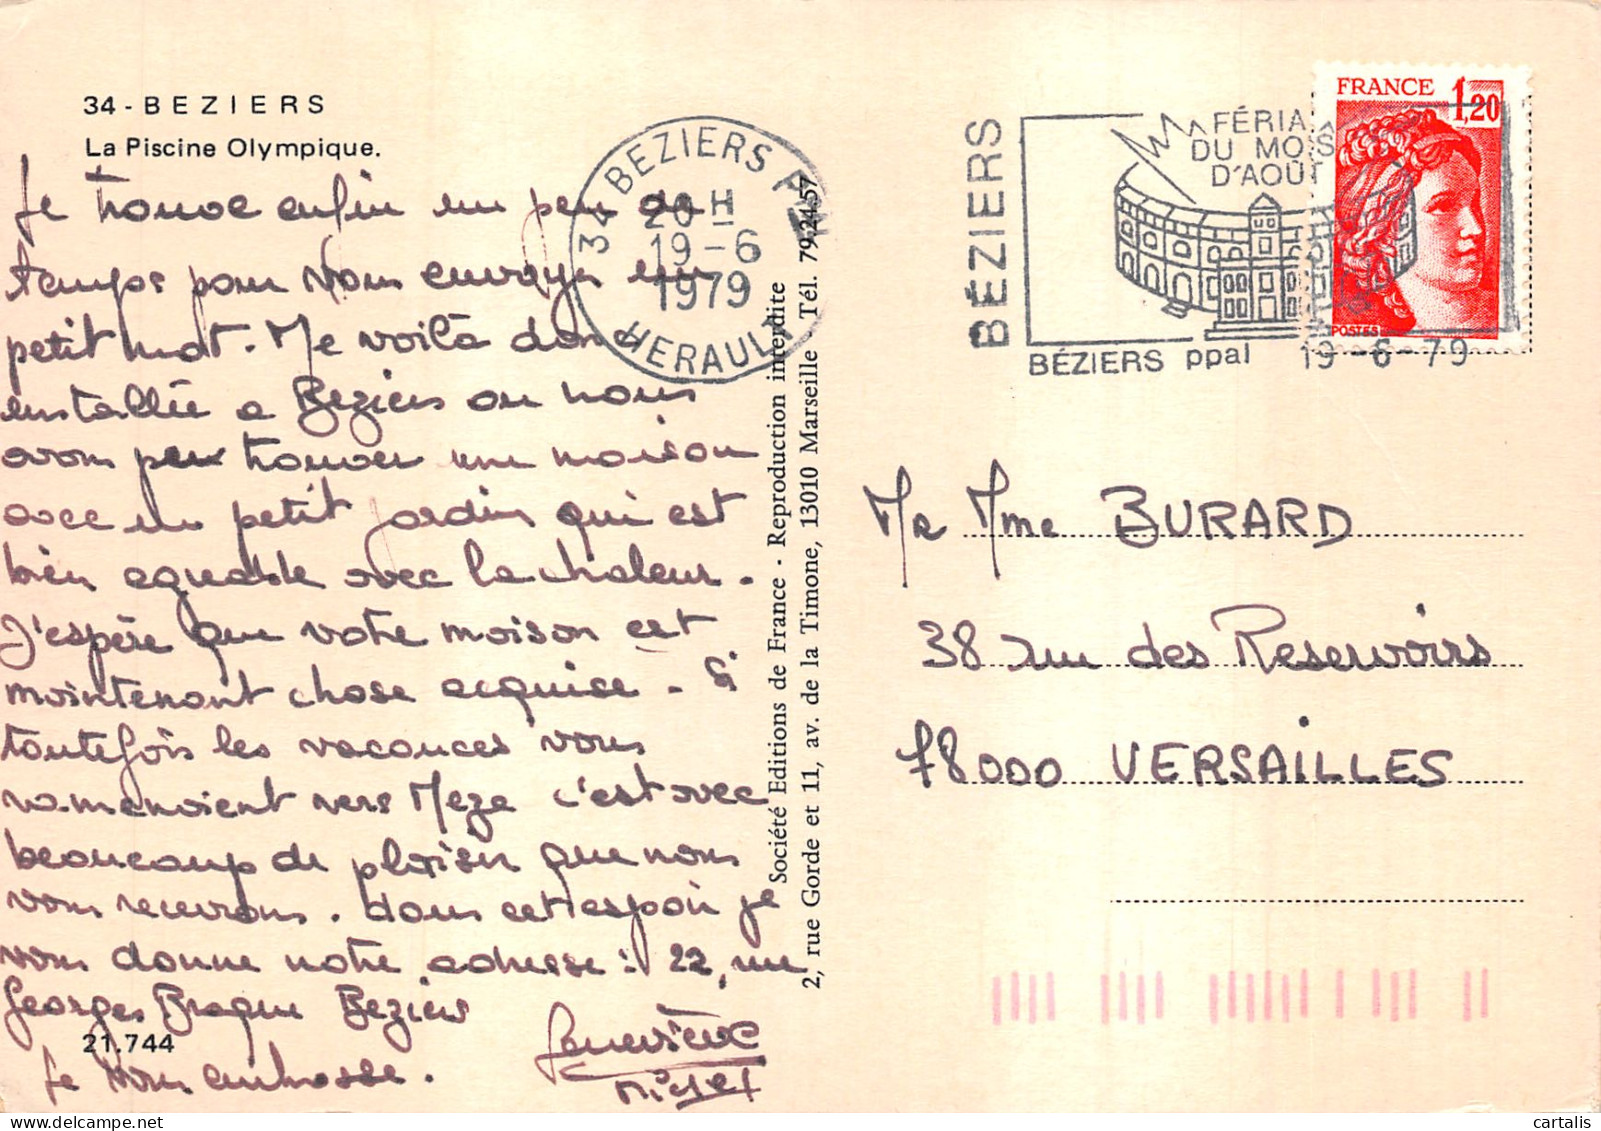 34 - BEZIERS
La Piscine Olympique.
Je trouve enfin un peu de
temps pour vous envoyer un
petit mot. Me voilà donc
installée a Beziers ou nous
avons peu trouver une maison
avec un petit jardin qui est
bien agréable avec la chaleur.
J'espère que votre maison est
maintenant chose acquise - Si
toutefois les vacances vous
ramenaient vers Meze c'est avec
beaucoup de plaisir que nous
vous recevrons. dans cet espoir je
vous donne notre adresse : 22, rue
Georges Braque Beziers
21.744
Je vous embrasse.
Geneviève
Michel
Société Editions de France - Reproduction interdite
2, rue Gorde et 11, av. de la Timone, 13010 Marseille Tél. 79.24.57
34 BEZIERS
20 H
19-6
1979
HERAULT
BÉZIERS
FÉRIA
DU MOIS
D'AOÛT
BÉZIERS ppal 19-6-79
FRANCE 1,20
POSTES
Mr Mme BURARD
38 rue des Reservoirs
78000 VERSAILLES
cartalis